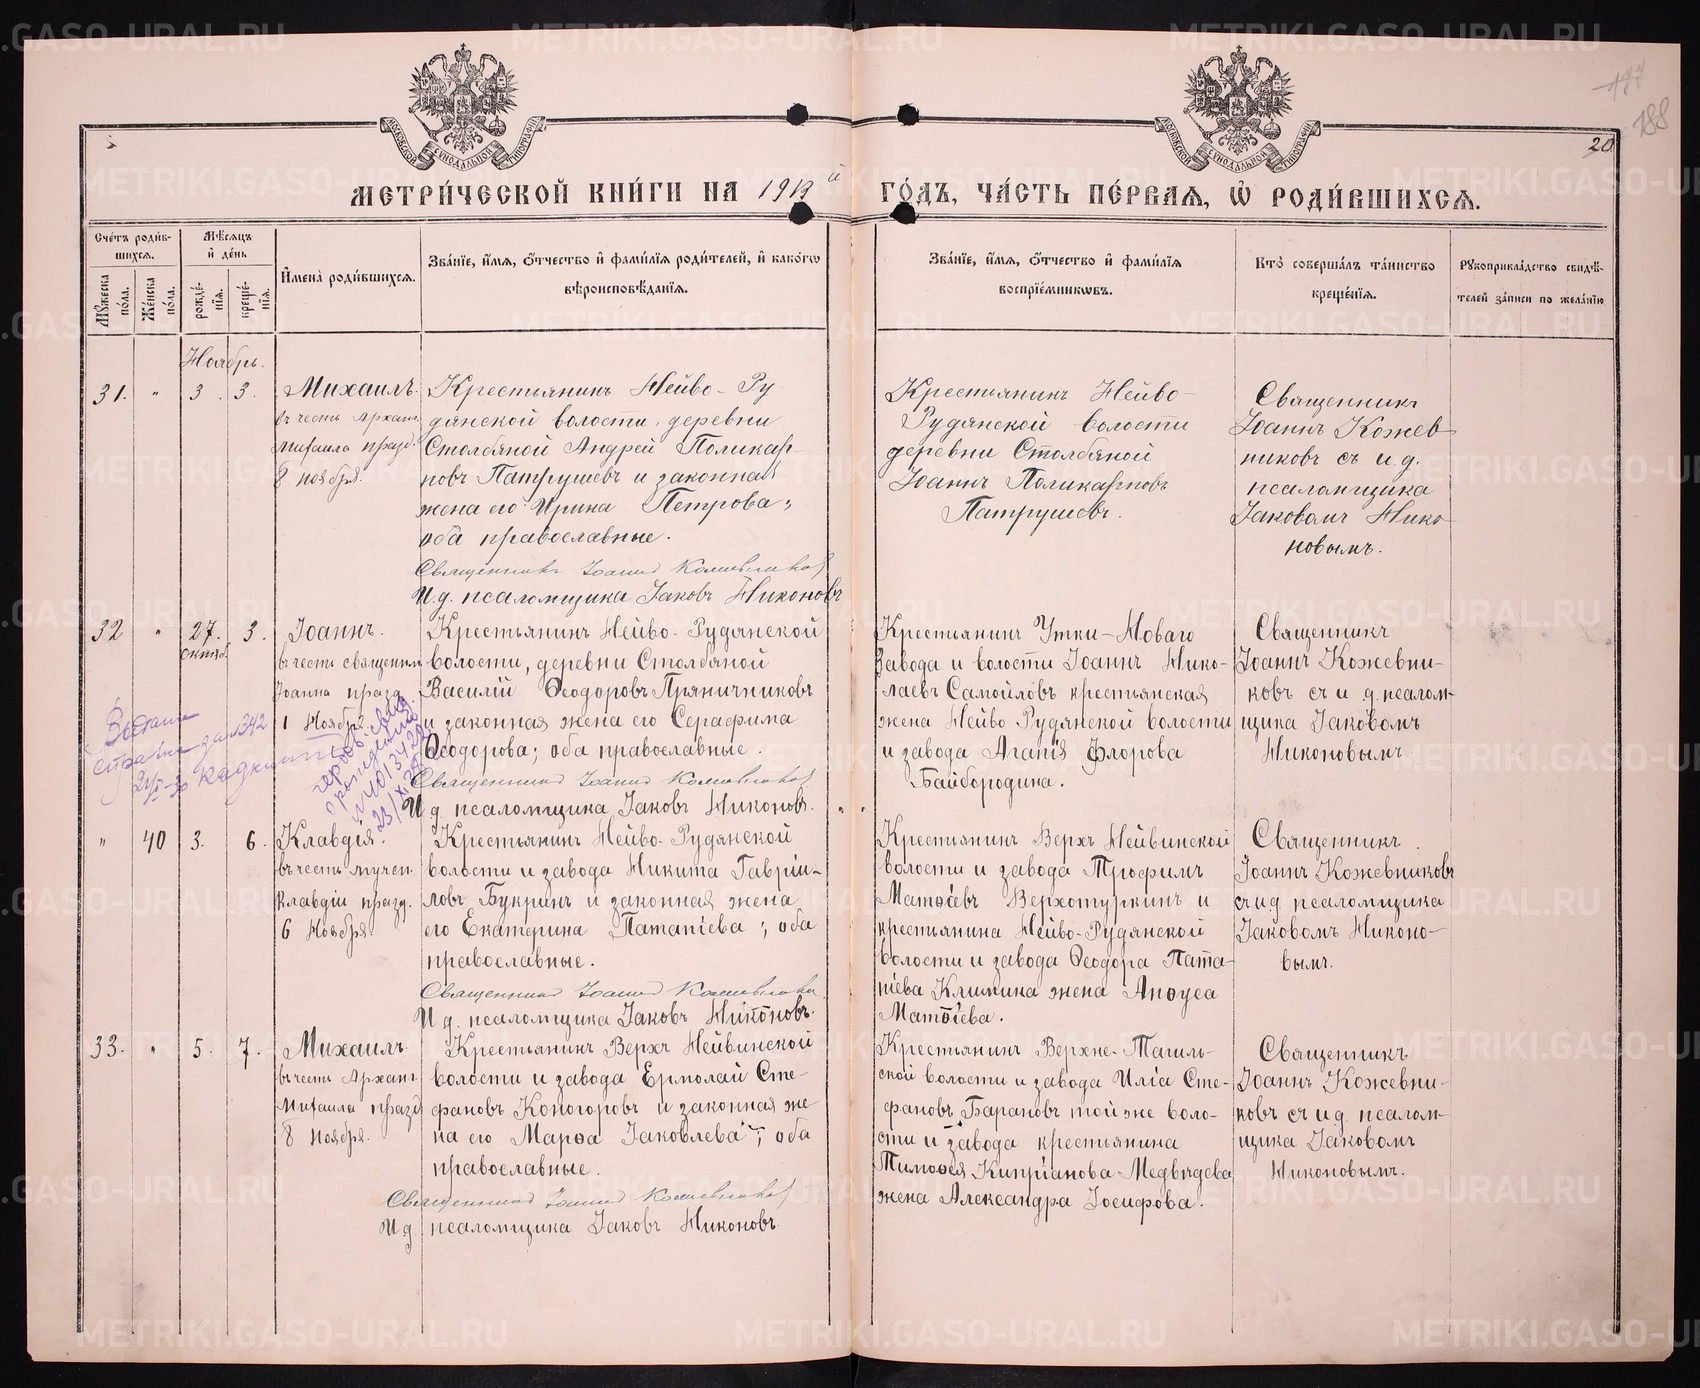 197
188
20
МОСКОВСКОЙ СѴНОДАЛЬНОЙ ТИПОГРАФІИ
МОСКОВСКОЙ СѴНОДАЛЬНОЙ ТИПОГРАФІИ
МЕТРИ́ЧЕСКОЙ КНИ́ГИ НА 1913 й ГО́ДЪ, ЧА́СТЬ ПЕ́РВАЯ, Ѽ РОДИ́ВШИХСЯ.
Сче́тъ роди́в-
шихся.
Му́жеска по́ла.
Же́нска по́ла.
Мѣ́сяцъ
и де́нь
рожде́-
нїя.
креще́-
нїя.
Имена̀ роди́вшихся.
Зва́нїе, и́мя, о́тчество и фами́лїя роди́телей, и како́гѡ
вѣроисповѣ́данїя.
Зва́нїе, и́мя, о́тчество и фами́лїя
воспрїе́мникѡвъ.
Кто̀ соверша́лъ та́инство
креще́нїя.
Рукоприкла́дство свидѣ́-
телей за́писи по жела́нїю
Ноябрь.
31.
"
3.
3.
Михаилъ.
въ честь Арханг.
Михаила празд.
8 ноября.
Крестьянинъ Нейво-Ру
дянской волости, деревни
Столбяной Андрей Поликар-
повъ Патрушевъ и законная
жена его Ирина Петрова;
оба православные.
Священникъ Іоаннъ Кожевников
И.д. псаломщика Іаковъ Никоновъ
Крестьянинъ Нейво-
Рудянской волости
деревни Столбяной
Іоаннъ Поликарповъ
Патрушевъ.
Священникъ
Іоаннъ Кожев
никовъ съ и.д.
псаломщика
Іаковомъ Нико
новымъ.
32
"
27.
октяб.
3.
Іоаннъ.
въ честь священном
Іоанна празд.
1 Ноября
Крестьянинъ Нейво-Рудянской
волости, деревни Столбяной
Василій Ѳеодоровъ Пряничниковъ
и законная жена его Серафима
Ѳеодорова; оба православные.
Священникъ Іоаннъ Кожевников
И д. псаломщика Іаковъ Никоновъ.
Крестьянинъ Утки-Новаго
Завода и волости Іоаннъ Нико-
лаевъ Самойловъ крестьянская
жена Нейво Рудянской волости
и завода Агапія Флорова
Байбородина.
Священникъ
Іоаннъ Кожевни-
ковъ съ и д. псалом-
щика Іаковомъ
Никоновымъ.
"
40
3.
6.
Клавдія.
въ честь мучен.
Клавдіи празд.
6 Ноября
Крестьянинъ Нейво-Рудянской
волости и завода Никита Гаврии-
ловъ Букринъ и законная жена
его Екатерина Патапіева; оба
православные.
Священникъ Іоаннъ Кожевников.
И д. псаломщика Іаковъ Никоновъ.
Крестьянинъ Верхъ Нейвинской
волости и завода Трофимъ
Матѳіевъ Верхотуркинъ и
крестьянина Нейво-Рудянской
волости и завода Ѳеодора Пата-
піева Климина жена Анѳуса
Матѳіева.
Священникъ
Іоаннъ Кожевниковъ
съ и д псаломщика
Іаковомъ Никоно-
вымъ.
33.
"
5.
7.
Михаилъ
въ честь Арханг.
Михаила празд
8 ноября.
Крестьянинъ Верхъ Нейвинской
волости и завода Ермолай Сте-
фановъ Коногоровъ и законная же
на его Марѳа Іаковлева; оба
православные.
Священникъ Іоаннъ Кожевников
И д. псаломщика Іаковъ Никоновъ
Крестьянинъ Верхне-Тагиль-
ской волости и завода Илія Сте-
фановъ Барановъ той же воло-
сти и завода крестьянина
Тимоѳея Кипріанова Медвѣдева
жена Александра Іосифова.
Священникъ
Іоаннъ Кожевни-
ковъ съ и д. псалом-
щика Іаковомъ
Никоновымъ.
METRIKI.GASO-URAL.RU